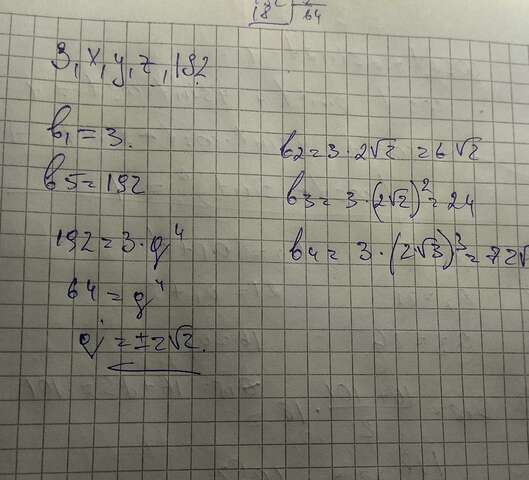 18 64
3, x, y, z, 192
b1 = 3.
b5 = 192
192 = 3 · q^4
64 = q^4
q = ±2√2.
b2 = 3 · 2√2 = 6√2
b3 = 3 · (2√2)^2 = 24
b4 = 3 · (2√3)^3 = 72√